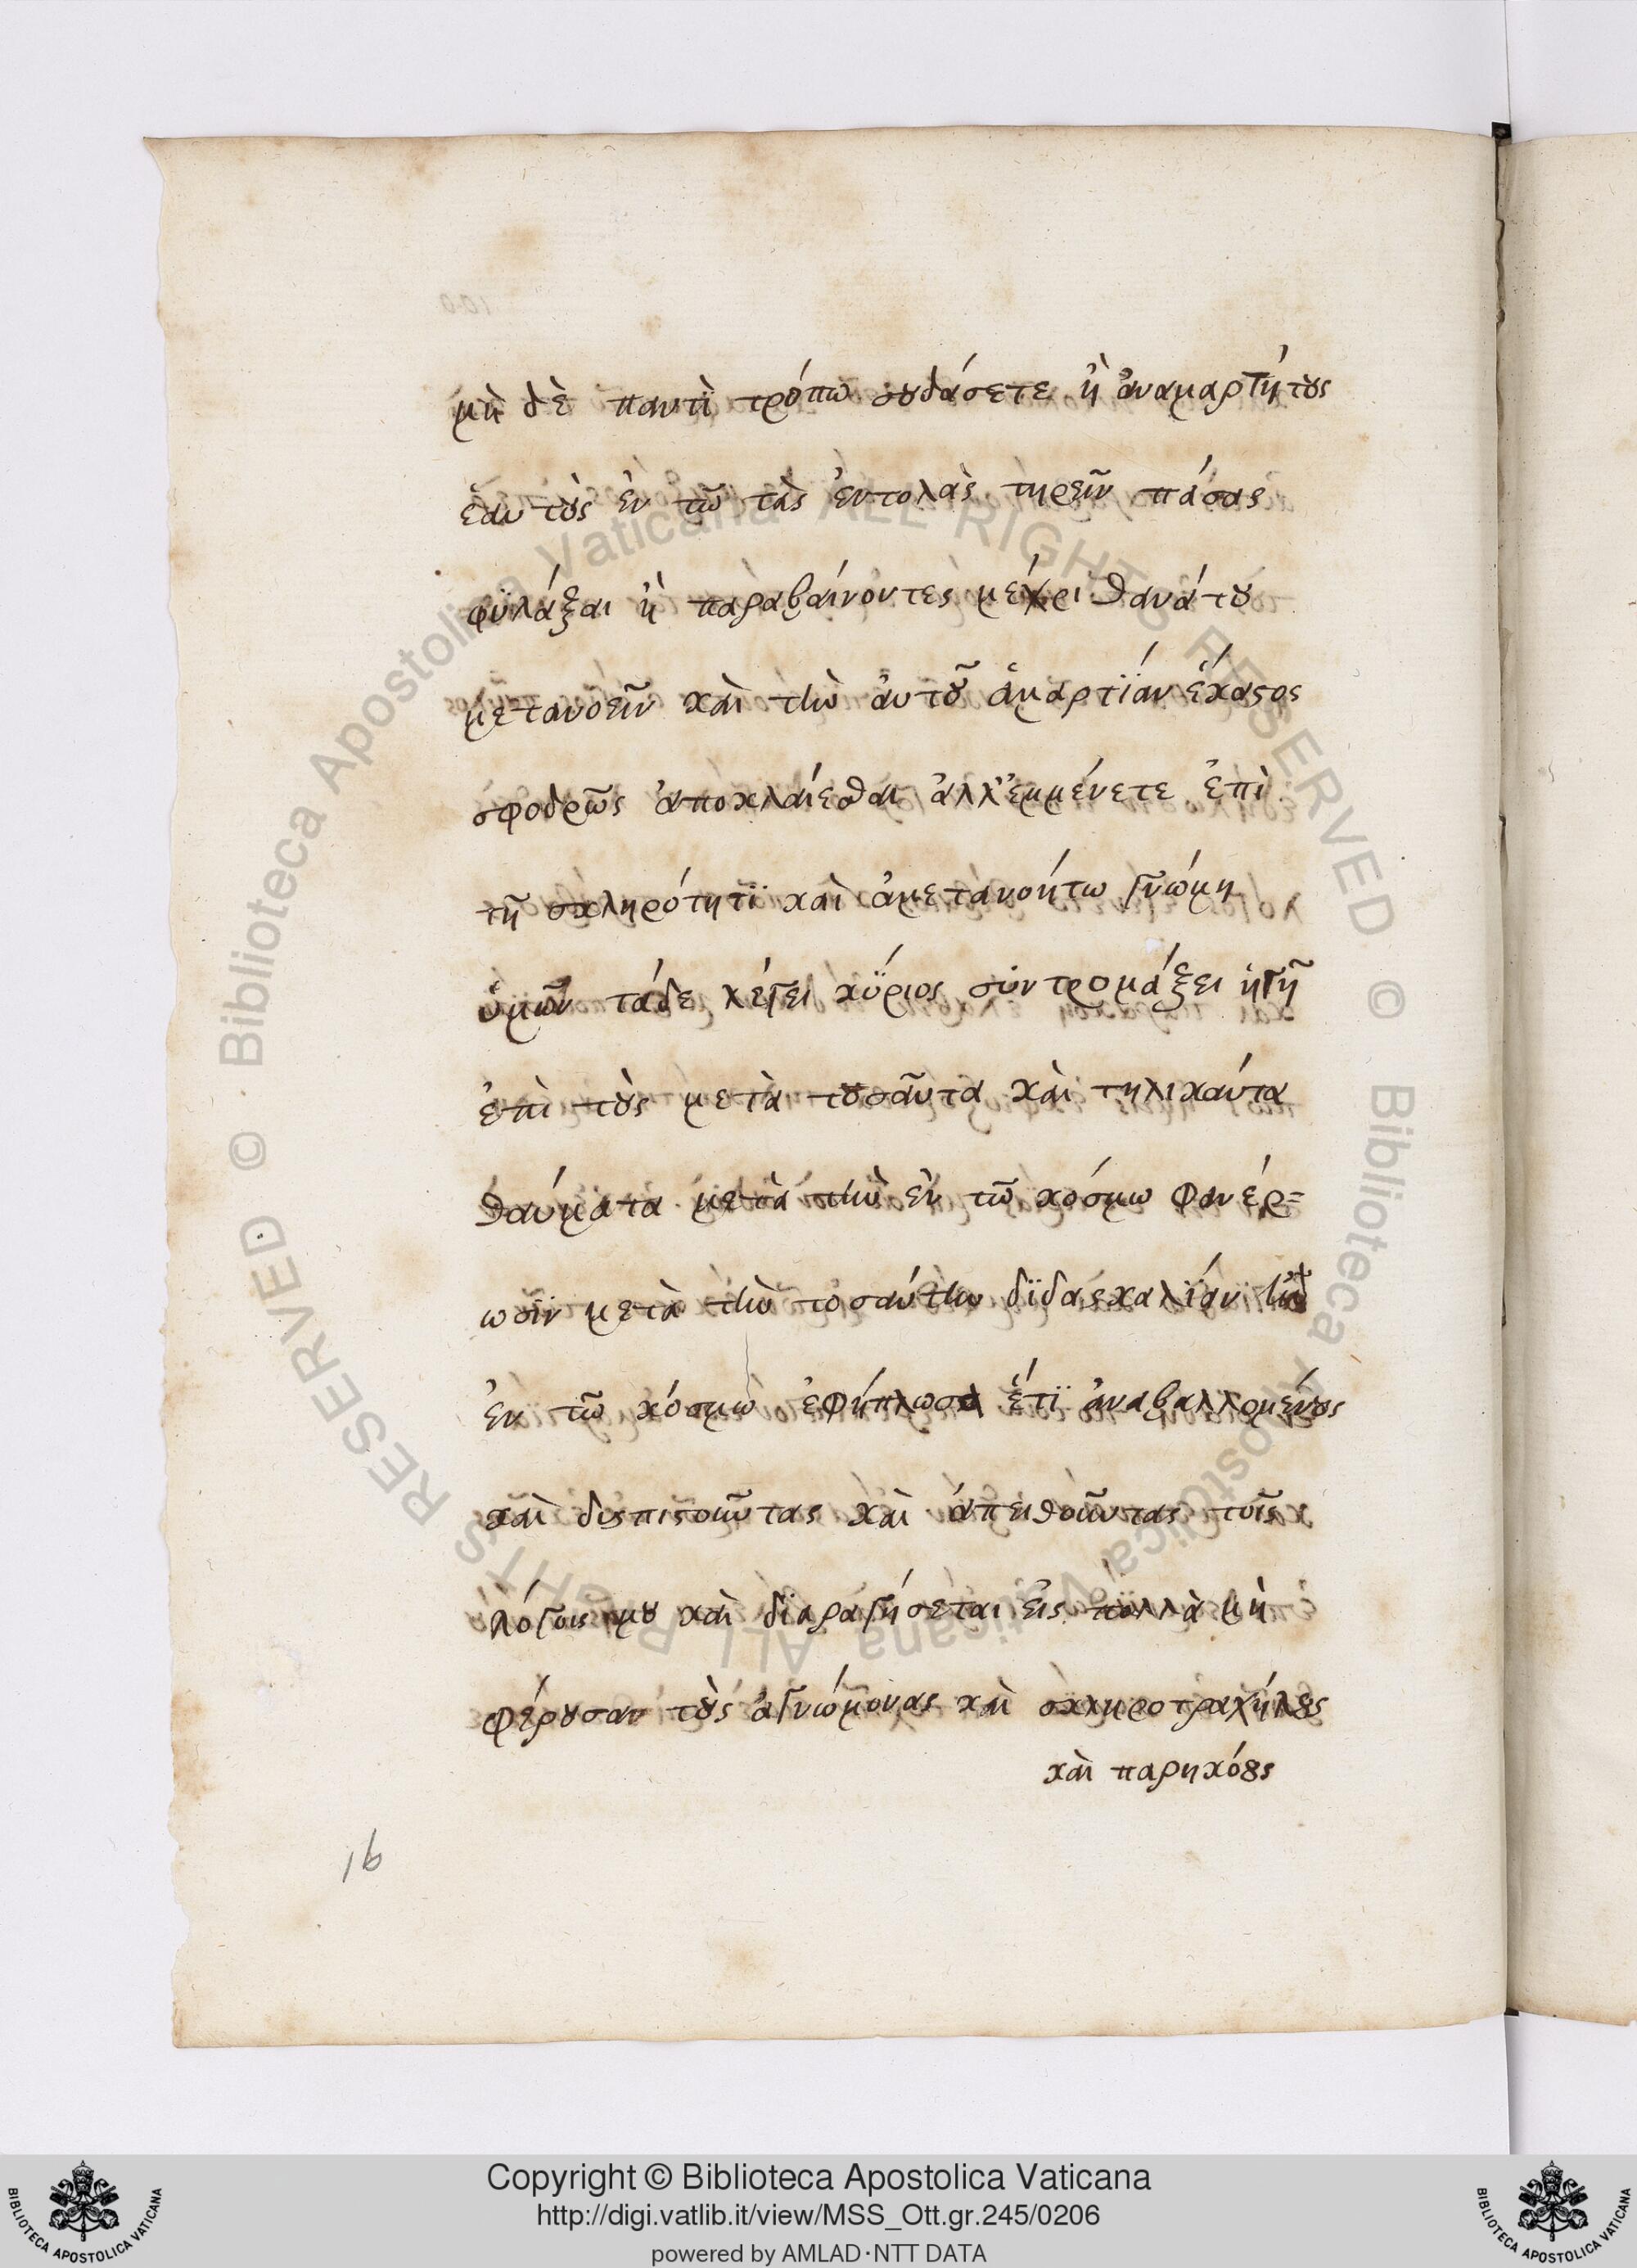 μὴ δὲ παντὶ τρόπω σουδάσετε ἢ ἀναμαρτήτους
ἑαυτοὺς ἐν τῶ τὰς ἐντολὰς τηρεῖν πάσας
φϋλάξαι ἢ παραβαίνοντες μέχρι θανάτου
μετανοεῖν καὶ τὴν ἀυτοῦ ἁμαρτΐαν ἕκαστος
σφοδρῶς ἀποκλαίεσθαι ἀλλ' ἐμμένετε ἐπὶ
τῆ σκληρότητϊ καὶ ἀμετανοήτω γνώμη
ὑμῶν τάδε λέγει κύριος σύντρομάξει ἡ γῆ
ἐπὶ τοὺς μετὰ τοσαῦτα καὶ τηλικαύτα
θαύματα μετὰ τὴν ἐν τῶ κόσμω φανέρ=
ωσϊν μετὰ τὴν τοσαύτην δϊδασκαλΐαν ἣν
ἐν τῶ κόσμω ἐφήπλωσα ἔτϊ ἀναβαλλομένους
καὶ δυσπιστοῦντας καὶ ἀπειθοῦντας τοῖς
λόγοις μου καὶ διαραγήσεται ἐις πολλὰ μὴ
φέρουσαν τοὺς ἀγνώμονας καὶ σκληροτραχήλους
καὶ παρηκόους
16
© Biblioteca Apostolica Vaticana ALL RIGHTS RESERVED © Biblioteca Apostolica Vaticana ALL RIGHTS RESERVED
Copyright © Biblioteca Apostolica Vaticana
http://digi.vatlib.it/view/MSS_Ott.gr.245/0206
powered by AMLAD·NTT DATA
BIBLIOTECA APOSTOLICA VATICANA
BIBLIOTECA APOSTOLICA VATICANA